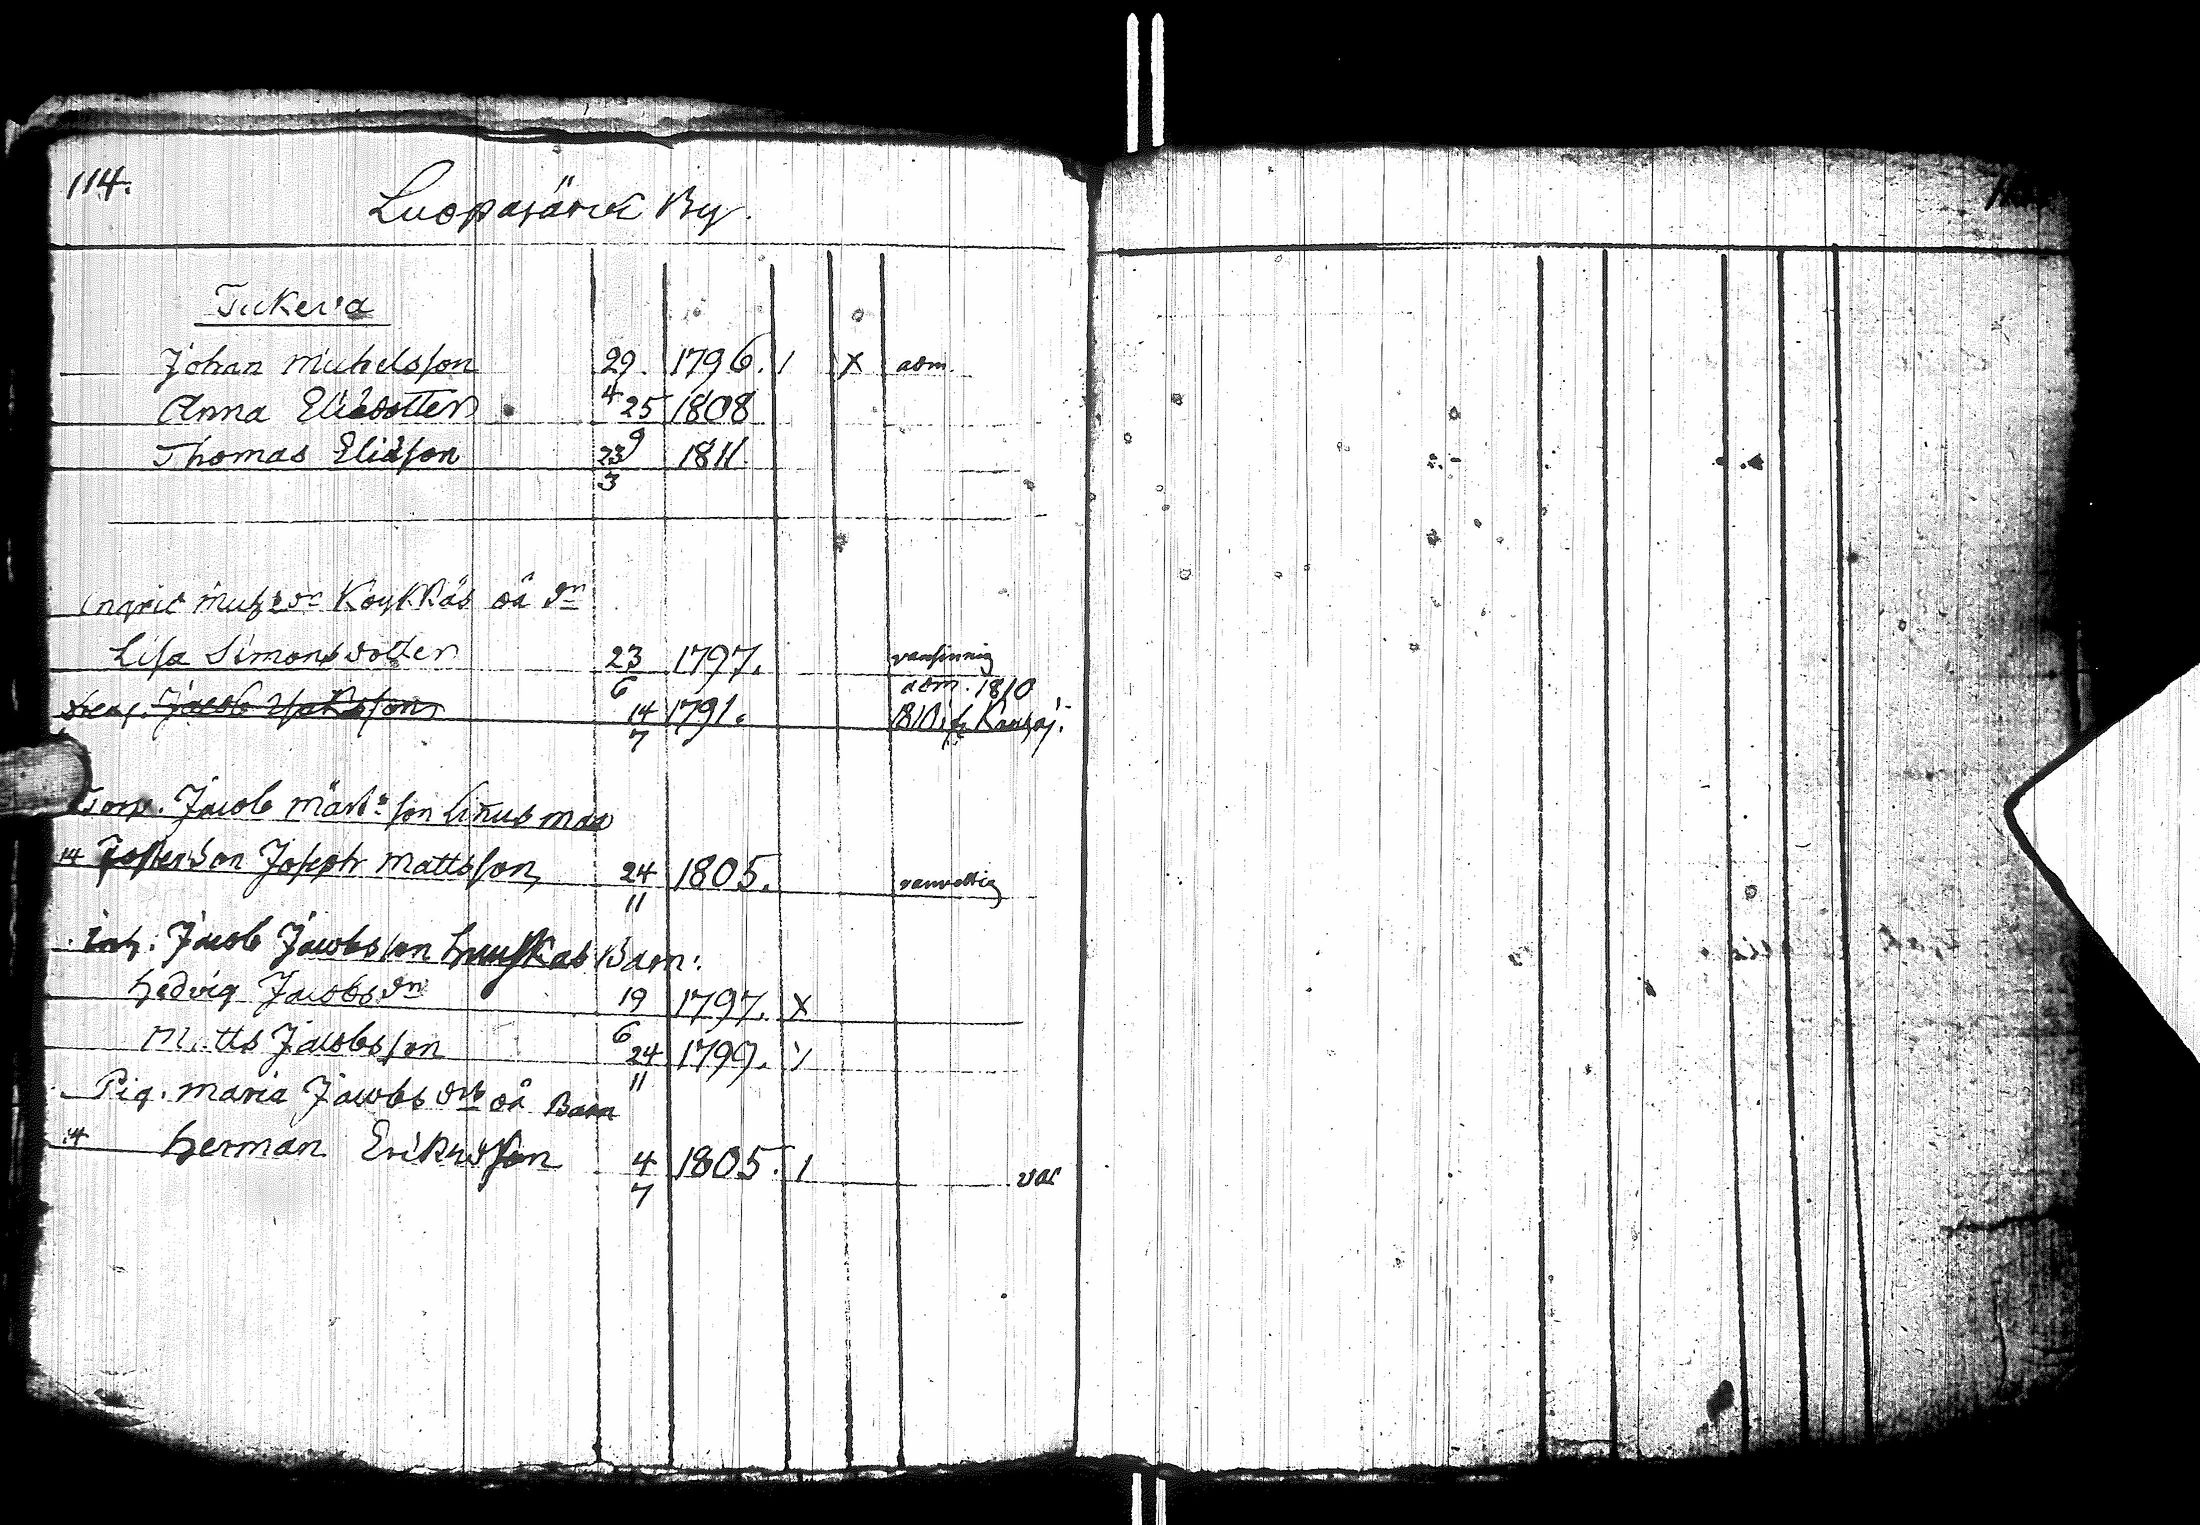 114.
Luopajärvi By.
Tukeva
Johan Michelsson 29/4 1796. 1 X adm.
Anna Eliædotter 25/9 1808
Thomas Eliæson 23/3 1811.
Ingrid dr Koykkäs då dr
Lisa Simonsdotter 23/6 1797. vansinnig
adm. 1810
Dreng. Jacob Isaksson 14/7 1791. 1810 fr
Torp. Jacob son Linusmaa
14 Fosterson Joseph Mattsson, 24/11 1805. vanvettig
Inh. Jacob Jacobsson Barn:
Hedvig Jacobsdr 19/6 1797. X
Matts Jacobsson 24/11 1799.
Pig. Maria Jacobs då Barn
14 Herman Eriksson 4/7 1805. 1 vac